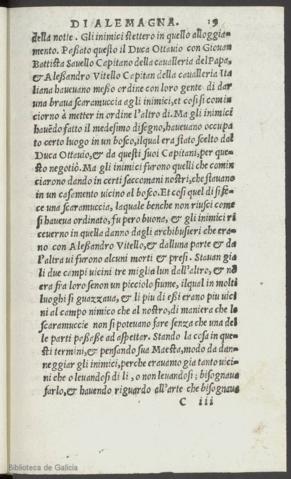 DI ALEMAGNA. 19
della notte. Gli inimici stettero in quello alloggia-
mento. Passato questo il Duca Ottauio con Giouan
Battista Sauello Capitano della caualleria del Papa,
& Alessandro Vitello Capitan della caualleria Ita
liana haueuano messo ordine con loro gente di dar
una braua scaramuccia agli inimici, et cosi si comin
ciorno à metter in ordine l'altro di. Ma gli inimici
hauēdo fatto il medesimo disegno, haueuano occupa
to certo luogo in un bosco, ilqual era stato scelto dal
Duca Ottauio, & da questi suoi Capitani, per que-
sto negotiò. Ma gli inimici furono quelli che comin
ciarono dando in certi saccomani nostri, che stauano
in un casamento uicino al bosco. Et cosi quel di si fe-
ce una scaramuccia, laquale benche non riusci come
si haueua ordinato, fu pero buona, & gli inimici ri
ceuerno in quella danno dagli archibusieri che era-
no con Alessandro Vitello, & dalluna parte & da
l'altra ui furono alcuni morti & presi. Stauan gia
li due campi uicini tre miglia lun dall'altro, & nō
era fra loro senon un picciolo fiume, ilqual in molti
luoghi si guazzaua, & li piu di essi erano piu uici
ni al campo nimico che al nostro, di maniera che le
scaramuccie non si poteuano fare senza che una del
le parti passasse ad aspettar. Stando la cosa in que-
sti termini, & pensando sua Maesta, modo da dan-
neggiar gli inimici, perche erauamo gia tanto uici-
ni che o leuandosi di li, o non leuandosi: bisognaua
farlo, & hauendo riguardo all'arte che bisognaua
C iii
Biblioteca de Galicia